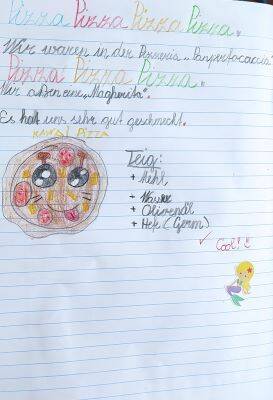 Pizza Pizza Pizza Pizza.
Wir waren in der Pizzeria „Panperfocaccia"
Pizza Pizza Pizza.
Wir aßen eine „Magherita".
Es hat uns sehr gut geschmeckt.
KAWAI PIZZA
Teig:
+ Mehl
+ Wasser
+ Olivenöl
+ Hefe (Germ)
✓ Cool!!